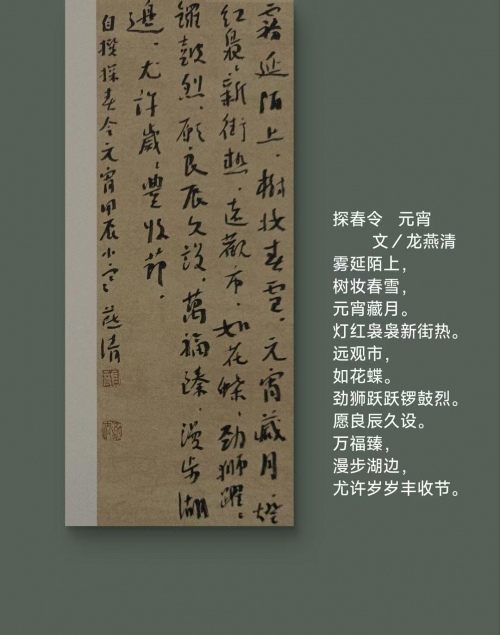 霧延陌上，樹妝春雪，元宵藏月。燈
红裊々新街热。远觀市，如花蝶，勁狮躍々
鑼鼓烈。愿良辰久設，萬福臻，漫步湖
邊，尤許歲々豐收節。
自撰探春令元宵甲辰小 燕清
探春令 元宵
文／龙燕清
雾延陌上，
树妆春雪，
元宵藏月。
灯红袅袅新街热。
远观市，
如花蝶。
劲狮跃跃锣鼓烈。
愿良辰久设。
万福臻，
漫步湖边，
尤许岁岁丰收节。